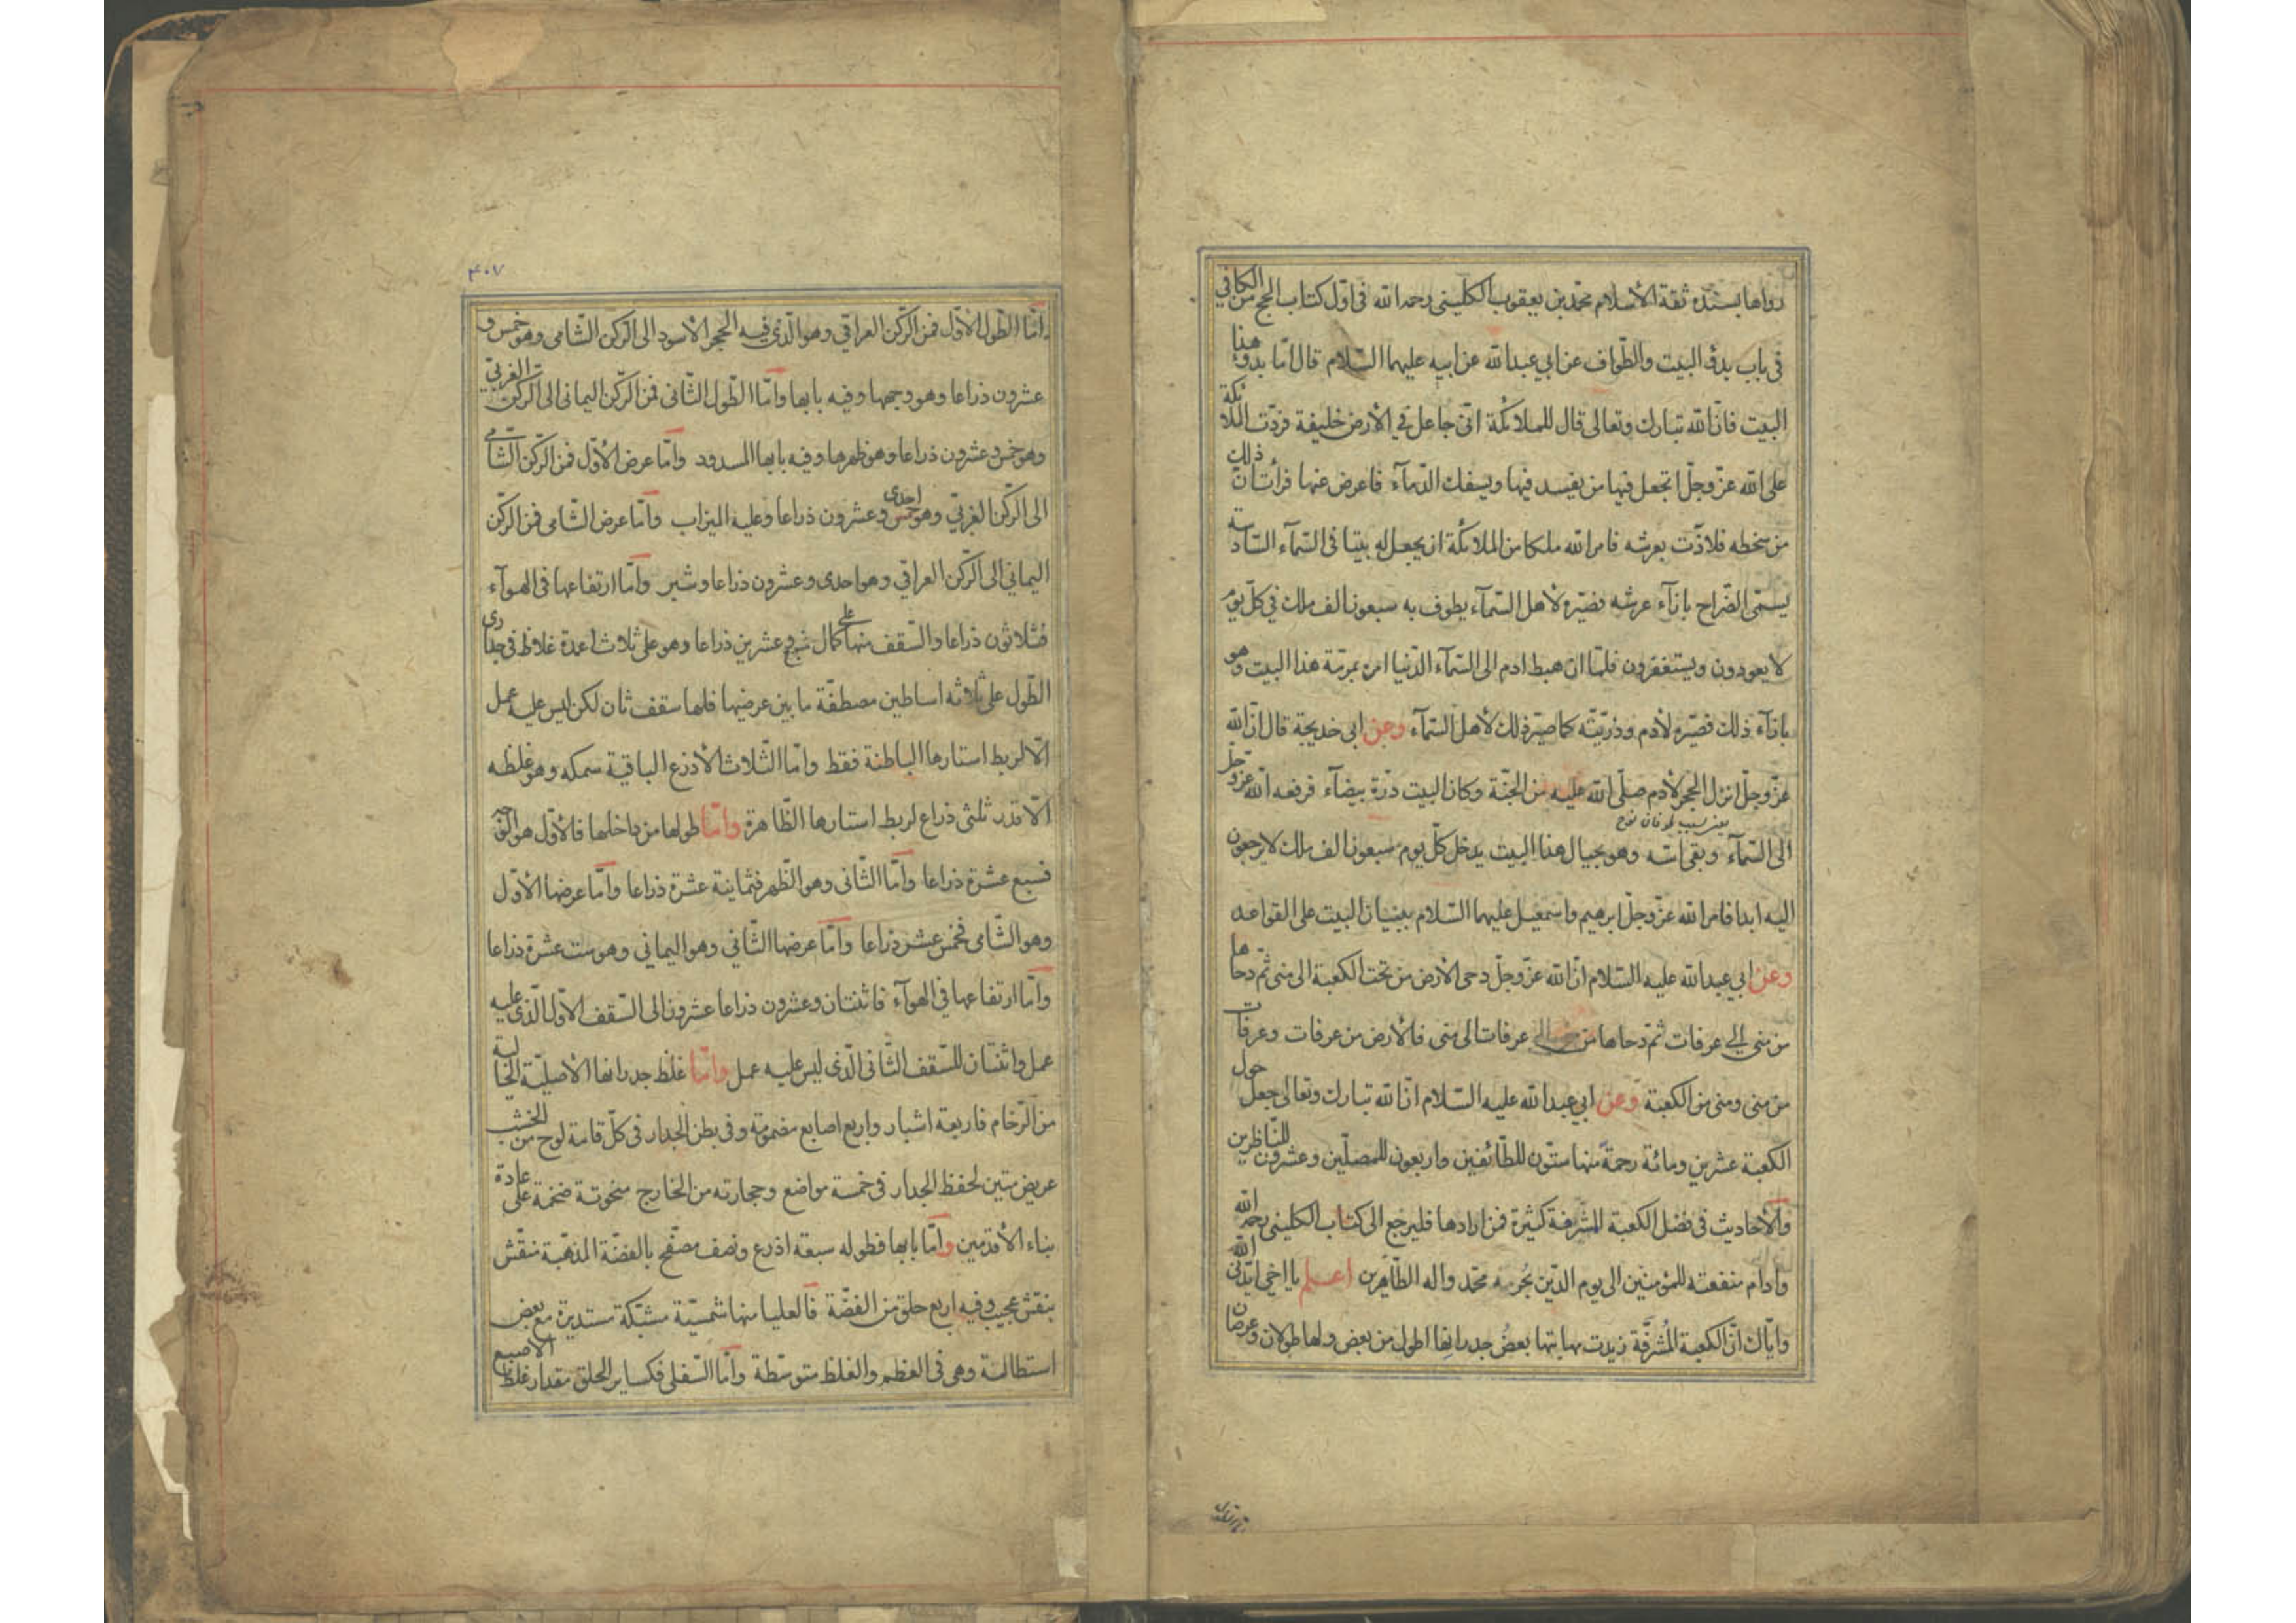 رواها بسنده ثقة الاسلام محمد بن يعقوب الكليني رحمه الله في اول كتاب الحج من الكافي
في باب بدؤ البيت والطواف عن ابي عبد الله عن ابيه عليهما السلام قال اما بدؤ هذا
البيت فان الله تبارك وتعالى قال للملائكة اني جاعل في الأرض خليفة فردت الملائكة
على الله عز وجل اتجعل فيها من يفسد فيها ويسفك الدمآء فاعرض عنها فرأت ان ذلك
من سخطه فلاذت بعرشه فامر الله ملكا من الملائكة ان يجعل له بيتا في السمآء السادسة
يسمى الضراح بازآء عرشه فصيره لأهل السمآء يطوف به سبعون الف ملك في كل يوم
لا يعودون ويستغفرون فلما ان هبط ادم الى السمآء الدنيا امره بمرمة هذا البيت وهو
بازآء ذلك فصيره لأدم وذريته كما صير ذلك لأهل السمآء وعن ابي خديجة قال ان الله
عز وجل انزل الحجر لأدم صلى الله عليه من الجنة وكان البيت درة بيضآء فرفعه الله عز وجل
يعني بسبب طوفان نوح
الى السمآء وبقي اسه وهو بحيال هذا البيت يدخل كل يوم سبعون الف ملك لا يرجعون
اليه ابدا فامر الله عز وجل ابرهيم واسمعيل عليهما السلام ببنيان البيت على القواعد
وعن ابي عبد الله عليه السلام ان الله عز وجل دحى الأرض من تحت الكعبة الى منى ثم دحاها
من منى الى عرفات ثم دحاها من عرفات الى منى فالأرض من عرفات وعرفات
من منى ومنى من الكعبة وعن ابي عبد الله عليه السلام ان الله تبارك وتعالى جعل حول
الكعبة عشرين ومائة رحمة منها ستون للطائفين واربعون للمصلين وعشرون للناظرين
والأحاديث في فضل الكعبة المشرفة كثيرة فمن ارادها فليرجع الى كتاب الكليني رحمه الله
وادام منفعته للمؤمنين الى يوم الدين بحرمة محمد واله الطاهرين اعلم يا اخي ايدني الله
واياك ان الكعبة المشرفة زيدت مهابتها بعض جدرانها اطول من بعض ولها طولان وعرضان
٤٠٧
اما الطول الأول فمن الركن العراقي وهو الذي فيه الحجر الأسود الى الركن الشامي وهو خمس و
عشرون ذراعا وهو وجهها وفيه بابها واما الطول الثاني فمن الركن اليماني الى الركن الغربي
وهو خمس وعشرون ذراعا وهو ظهرها وفيه بابها المسدود واما عرض الأول فمن الركن الشامي
الى الركن الغربي وهو احدى وعشرون ذراعا وعليه الميزاب واما عرض الشامي فمن الركن
اليماني الى الركن العراقي وهو احدى وعشرون ذراعا وشبر واما ارتفاعها في الهوآء
فثلاثون ذراعا والسقف منها على كمال وعشرين ذراعا وهو على ثلاث اعمدة غلاظ في جداري
الطول على ثلاثة اساطين مصطفة ما بين عرضيها فلها سقف ثان لكن ليس عليه عمل
الا لربط استارها الباطنة فقط واما الثلاث الأذرع الباقية سمكه وهو غلظه
الا قدر ثلثى ذراع لربط استارها الظاهرة واما طولها من داخلها فالأول هو الوجه
فسبع عشرة ذراعا واما الثاني وهو الظهر فثمانية عشرة ذراعا واما عرضها الأول
وهو الشامي فخمس عشر ذراعا واما عرضها الثاني وهو اليماني وهو ست عشرة ذراعا
واما ارتفاعها في الهوآء فاثنتان وعشرون ذراعا عشرون الى السقف الأول الذي عليه
عمل واثنتان للسقف الثاني الذي ليس عليه عمل واما غلظ جدرانها الأصلية الخالية
من الرخام فاربعة اشبار واربع اصابع مضمومة وفي بطن الجدار في كل قامة لوح من الخشب
عريض متين لحفظ الجدار في خمسة مواضع وحجارته من الخارج منحوتة ضخمة على عادة
بناء الأقدمين واما بابها فطوله سبعة اذرع ونصف مصفح بالفضة المذهبة منقش
بنقش عجيب وفيه اربع حلق من الفضة فالعليا منها شمسية مشبكة مستديرة مع بعض
استطالة وهي في العظم والغلظ متوسطة واما السفلى فكساير الحلق مقدار غلظ الاصبع